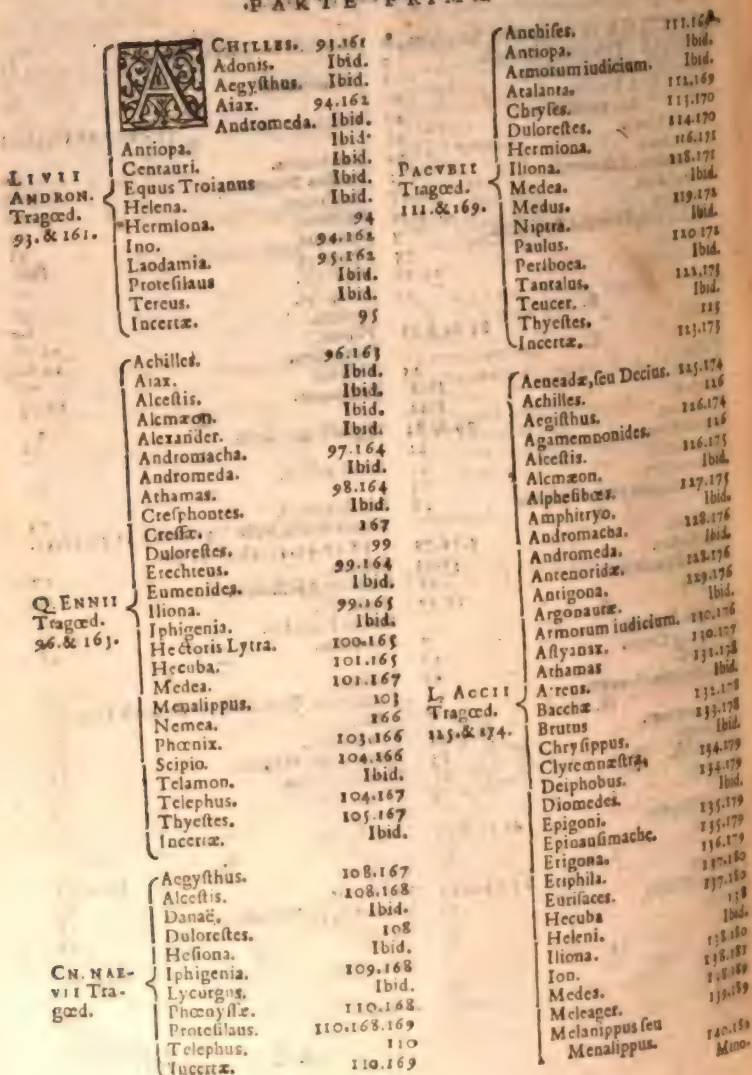 PARTE PRIMA
LIVII
ANDRON.
Tragœd.
93. & 161.
ACHILLES. 93.161
Adonis. Ibid.
Aegysthus. Ibid.
Aiax. 94.162
Andromeda. Ibid.
Antiopa. Ibid.
Centauri. Ibid.
Equus Troianus Ibid.
Helena. Ibid.
Hermiona. 94
Ino. 94.162
Laodamia. 95.162
Protesilaus Ibid.
Tereus. Ibid.
Incertæ. 95
Q. ENNII
Tragœd.
96. & 163.
Achilles. 96.163
Aiax. Ibid.
Alcestis. Ibid.
Alcmæon. Ibid.
Alexander. Ibid.
Andromacha. 97.164
Andromeda. Ibid.
Athamas. 98.164
Cresphontes. Ibid.
Cressæ. 167
Dulorestes. 99
Erechteus. 99.164
Eumenides. Ibid.
Iliona. 99.165
Iphigenia. Ibid.
Hectoris Lytra. 100.165
Hecuba. 101.165
Medea. 101.167
Menalippus. 103
Nemea. 166
Phœnix. 103.166
Scipio. 104.166
Telamon. Ibid.
Telephus. 104.167
Thyestes. 105.167
Incertæ. Ibid.
CN. NAE-
VII Tra-
gœd.
Aegysthus. 108.167
Alcestis. 108.168
Danaë. Ibid.
Dulorestes. 108
Hesiona. Ibid.
Iphigenia. 109.168
Lycurgus. Ibid.
Phœnyssæ. 110.168
Protesilaus. 110.168.169
Telephus. 110
Incertæ. 110.169
PACVBII
Tragœd.
111. & 169.
Anchises.
Antiopa. Ibid.
Armorum iudicium. Ibid.
Atalanta. 112.169
Chryses. 113.170
Dulorestes. 114.170
Hermiona. 116.171
Iliona. 118.171
Medea. Ibid.
Medus. 119.172
Niptra. Ibid.
Paulus. 120 172
Periboea. Ibid.
Tantalus. 122.173
Teucer. Ibid.
Thyestes. 125
Incertæ. 123.173
L. ACCII
Tragœd.
125. & 174.
Aeneadæ, seu Decius. 125.174
Achilles. 126
Aegisthus. 126.174
Agamemnonides. 126
Alcestis. 126.175
Alcmæon. Ibid.
Alphesibœa. 127.175
Amphitryo. Ibid.
Andromacha. 128.176
Andromeda. Ibid.
Antenoridæ. 128.176
Antigona. 129.176
Argonautæ. Ibid.
Armorum iudicium. 130.176
Astyanax. 130.177
Athamas 131.178
Atreus. Ibid.
Bacchæ 132.178
Brutus 133.178
Chrysippus. Ibid.
Clytemnæstra. 134.179
Deiphobus. 134.179
Diomedes. Ibid.
Epigoni. 135.179
Epinausimache. 135.179
Erigona. 136.179
Eriphila. 137.180
Eurisaces. 137.180
Hecuba 138
Heleni. Ibid.
Iliona. 138.180
Ion. 138.181
Medea.
Meleager. 139.189
Melanippus seu
Menalippus.
Mino-